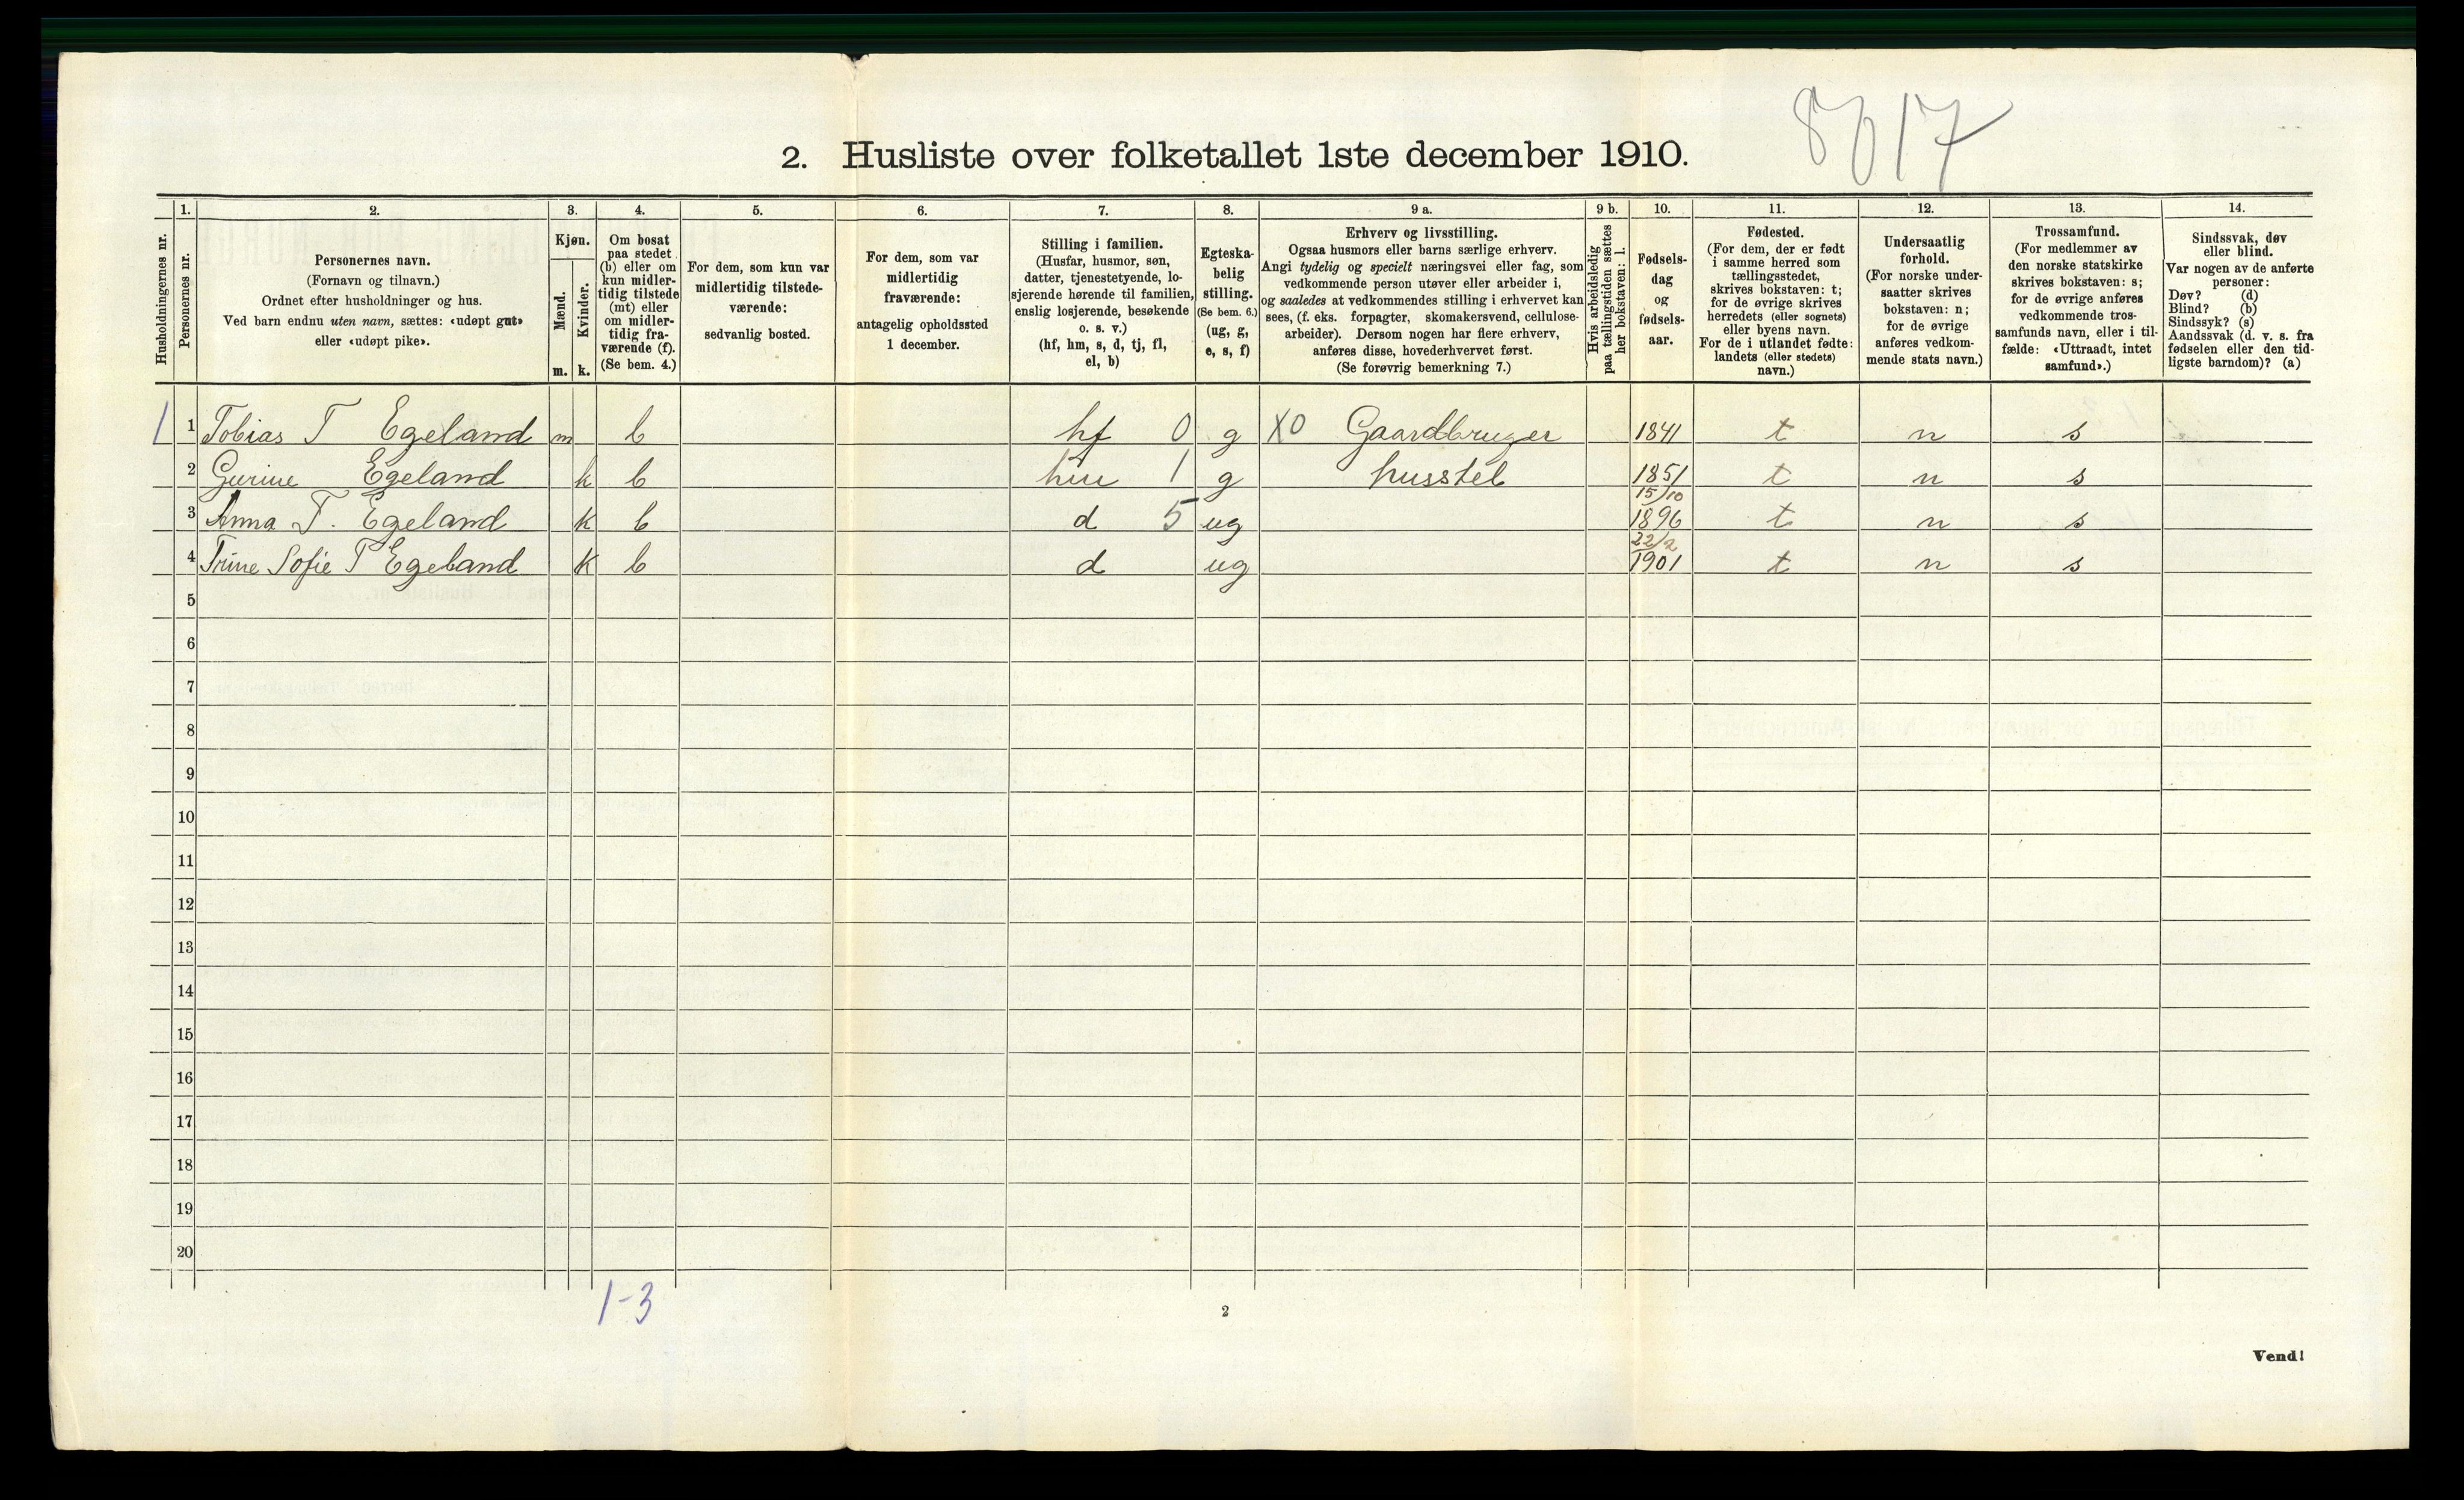 8017
2. Husliste over folketallet 1ste december 1910.
1. 2. 3. 4. 5. 6. 7. 8. 9 a. 9 b. 10. 11. 12. 13. 14.
Husholdningernes nr.
Personernes nr.
Personernes navn.
(Fornavn og tilnavn.)
Ordnet efter husholdninger og hus.
Ved barn endnu uten navn, sættes: «udøpt gut»
eller «udøpt pike».
Kjøn.
Mænd.
Kvinder.
m. k.
Om bosat
paa stedet
(b) eller om
kun midler-
tidig tilstede
(mt) eller
om midler-
tidig fra-
værende (f).
(Se bem. 4.)
For dem, som kun var
midlertidig tilstede-
værende:
sedvanlig bosted.
For dem, som var
midlertidig
fraværende:
antagelig opholdssted
1 december.
Stilling i familien.
(Husfar, husmor, søn,
datter, tjenestetyende, lo-
sjerende hørende til familien,
enslig losjerende, besøkende
o. s. v.)
(hf, hm, s, d, tj, fl,
el, b)
Egteska-
belig
stilling.
(Se bem. 6.)
(ug, g,
e, s, f)
Erhverv og livsstilling.
Ogsaa husmors eller barns særlige erhverv.
Angi tydelig og specielt næringsvei eller fag, som
vedkommende person utøver eller arbeider i,
og saaledes at vedkommendes stilling i erhvervet kan
sees, (f. eks. forpagter, skomakersvend, cellulose-
arbeider). Dersom nogen har flere erhverv,
anføres disse, hovederhvervet først.
(Se forøvrig bemerkning 7.)
Hvis arbeidsledig
paa tællingstiden sættes
her bokstaven: l.
Fødsels-
dag
og
fødsels-
aar.
Fødested.
(For dem, der er født
i samme herred som
tællingsstedet,
skrives bokstaven: t;
for de øvrige skrives
herredets (eller sognets)
eller byens navn.
For de i utlandet fødte:
landets (eller stedets)
navn.)
Undersaatlig
forhold.
(For norske under-
saatter skrives
bokstaven: n;
for de øvrige
anføres vedkom-
mende stats navn.)
Trossamfund.
(For medlemmer av
den norske statskirke
skrives bokstaven: s;
for de øvrige anføres
vedkommende tros-
samfunds navn, eller i til-
fælde: «Uttraadt, intet
samfund».)
Sindssvak, døv
eller blind.
Var nogen av de anførte
personer:
Døv? (d)
Blind? (b)
Sindssyk? (s)
Aandssvak (d. v. s. fra
fødselen eller den tid-
ligste barndom)? (a)
1 1 Tobias T Egeland m b hf 0 g X0 Gaardbruger 1841 t n s
2 Gurine Egeland k b hm 1 g husstel 1851 t n s
3 Anna T. Egeland k b d 5 ug 15/10 1896 t n s
4 Trine Sofie T Egeland k b d ug 22/2 1901 t n s
5
6
7
8
9
10
11
12
13
14
15
16
17
18
19
20
1-3
2
Vend!